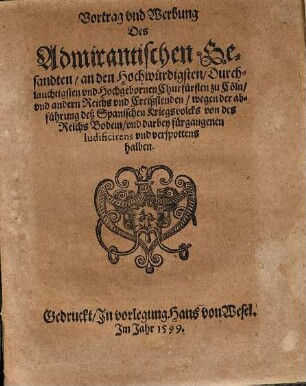 Vortrag vnd Werbung
Des
Admirantischen Ge-
sandten / an den Hochwürdigsten / Durch-
lauchtigsten vnd Hochgebornen Churfürsten zu Cöln /
vnd andern Reichs vnd Creißstenden / wegen der ab-
führung deß Spanischen Kriegsvolcks von des
Reichs Bodem / vnd darbey fürgangenen
ludificirens vnd verspottens
halben.
Gedruckt / In vorlegung Hans von Wesel.
Im Jahr 1599.